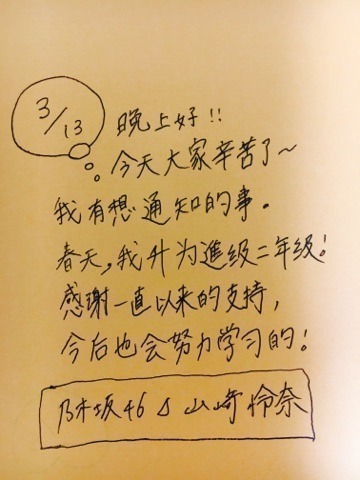 3/13
晚上好!!
今天大家辛苦了~
我有想通知的事。
春天,我升为進级二年级!
感谢一直以来的支持,
今后也会努力学习的!
乃木坂46 △ 山崎怜奈